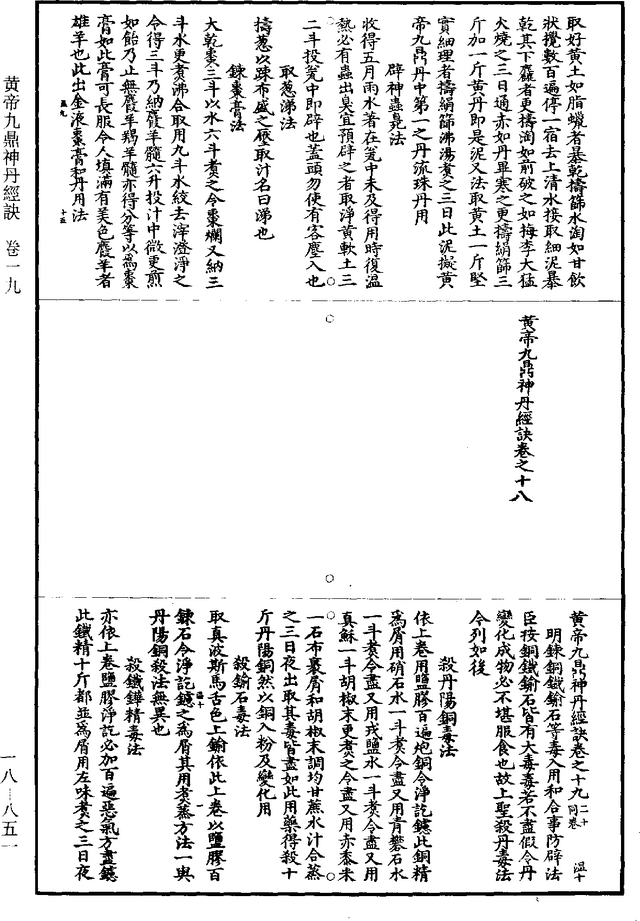 取好黄土如脂蠟者暴乾擣篩水淘如甘飲
狀攪數百遍停一宿去上清水接取細泥暴
乾其下麤者更擣淘如前破之如梅李大猛
火燒之三日通赤如丹畢寒之更擣絹篩三
斤加一斤黄丹即是泥又法取黄土一斤堅
實細理者擣絹篩沸湯煑之三日此泥擬黄
帝九鼎丹中第一之丹流珠丹用
辟神蟲毒法
收得五月雨水著在瓮中未及得用時復温
熱必有蟲出臭宜預辟之者取淨黄軟土三
二斗投瓮中即辟也蓋頭勿使有客塵入也
取葱涕法
擣葱以疎布盛之壓取汁名曰涕也
鍊棗膏法
大乾棗三斗以水六斗煑之令棗爛又納三
斗水更煑沸合取用九斗水絞去滓澄淨之
令得三斗乃納麢羊髓六升投汁中微更煎
如飴乃止無麢羊羖羊髓亦得分等以爲棗
膏如此膏可長服令人填滿有美色麢羊者
雄羊也此出金液棗膏和丹用法
温九 十五
黄帝九鼎神丹經訣 卷一九
黄帝九鼎神丹經訣卷之十八
黄帝九鼎神丹經訣卷之十九 二十同卷 温十
明鍊銅鐵鍮石等毒入用和合事防辟法
臣按銅鐵鍮石皆有大毒毒若不盡假令丹
變化成物必不堪服食也故上聖殺丹毒法
今列如後
殺丹陽銅毒法
依上卷用鹽膠百遍炮銅令淨訖鑢此銅精
爲屑用硝石水一斗煑令盡又用青礬石水
一斗煑令盡又用戎鹽水一斗煑令盡又用
真酥一斗胡椒末更煑之令盡又用赤黍米
一石布裹屑和胡椒末調均甘蔗水汁合蒸
之三日夜出取其毒皆盡如此用藥得殺十
斤丹陽銅然以銅入粉及變化用
殺鍮石毒法
取真波斯馬舌色上鍮依此上卷以鹽膠百
温十 一
鍊石令淨訖鑢之爲屑其用煑蒸方法一與
丹陽銅殺法無異也
殺鐵鏵精毒法
亦依上卷鹽膠淨訖必加百遍惡氣方盡鑢
此鐵精十斤都並爲屑用左味煑之三日夜
一八—八五一